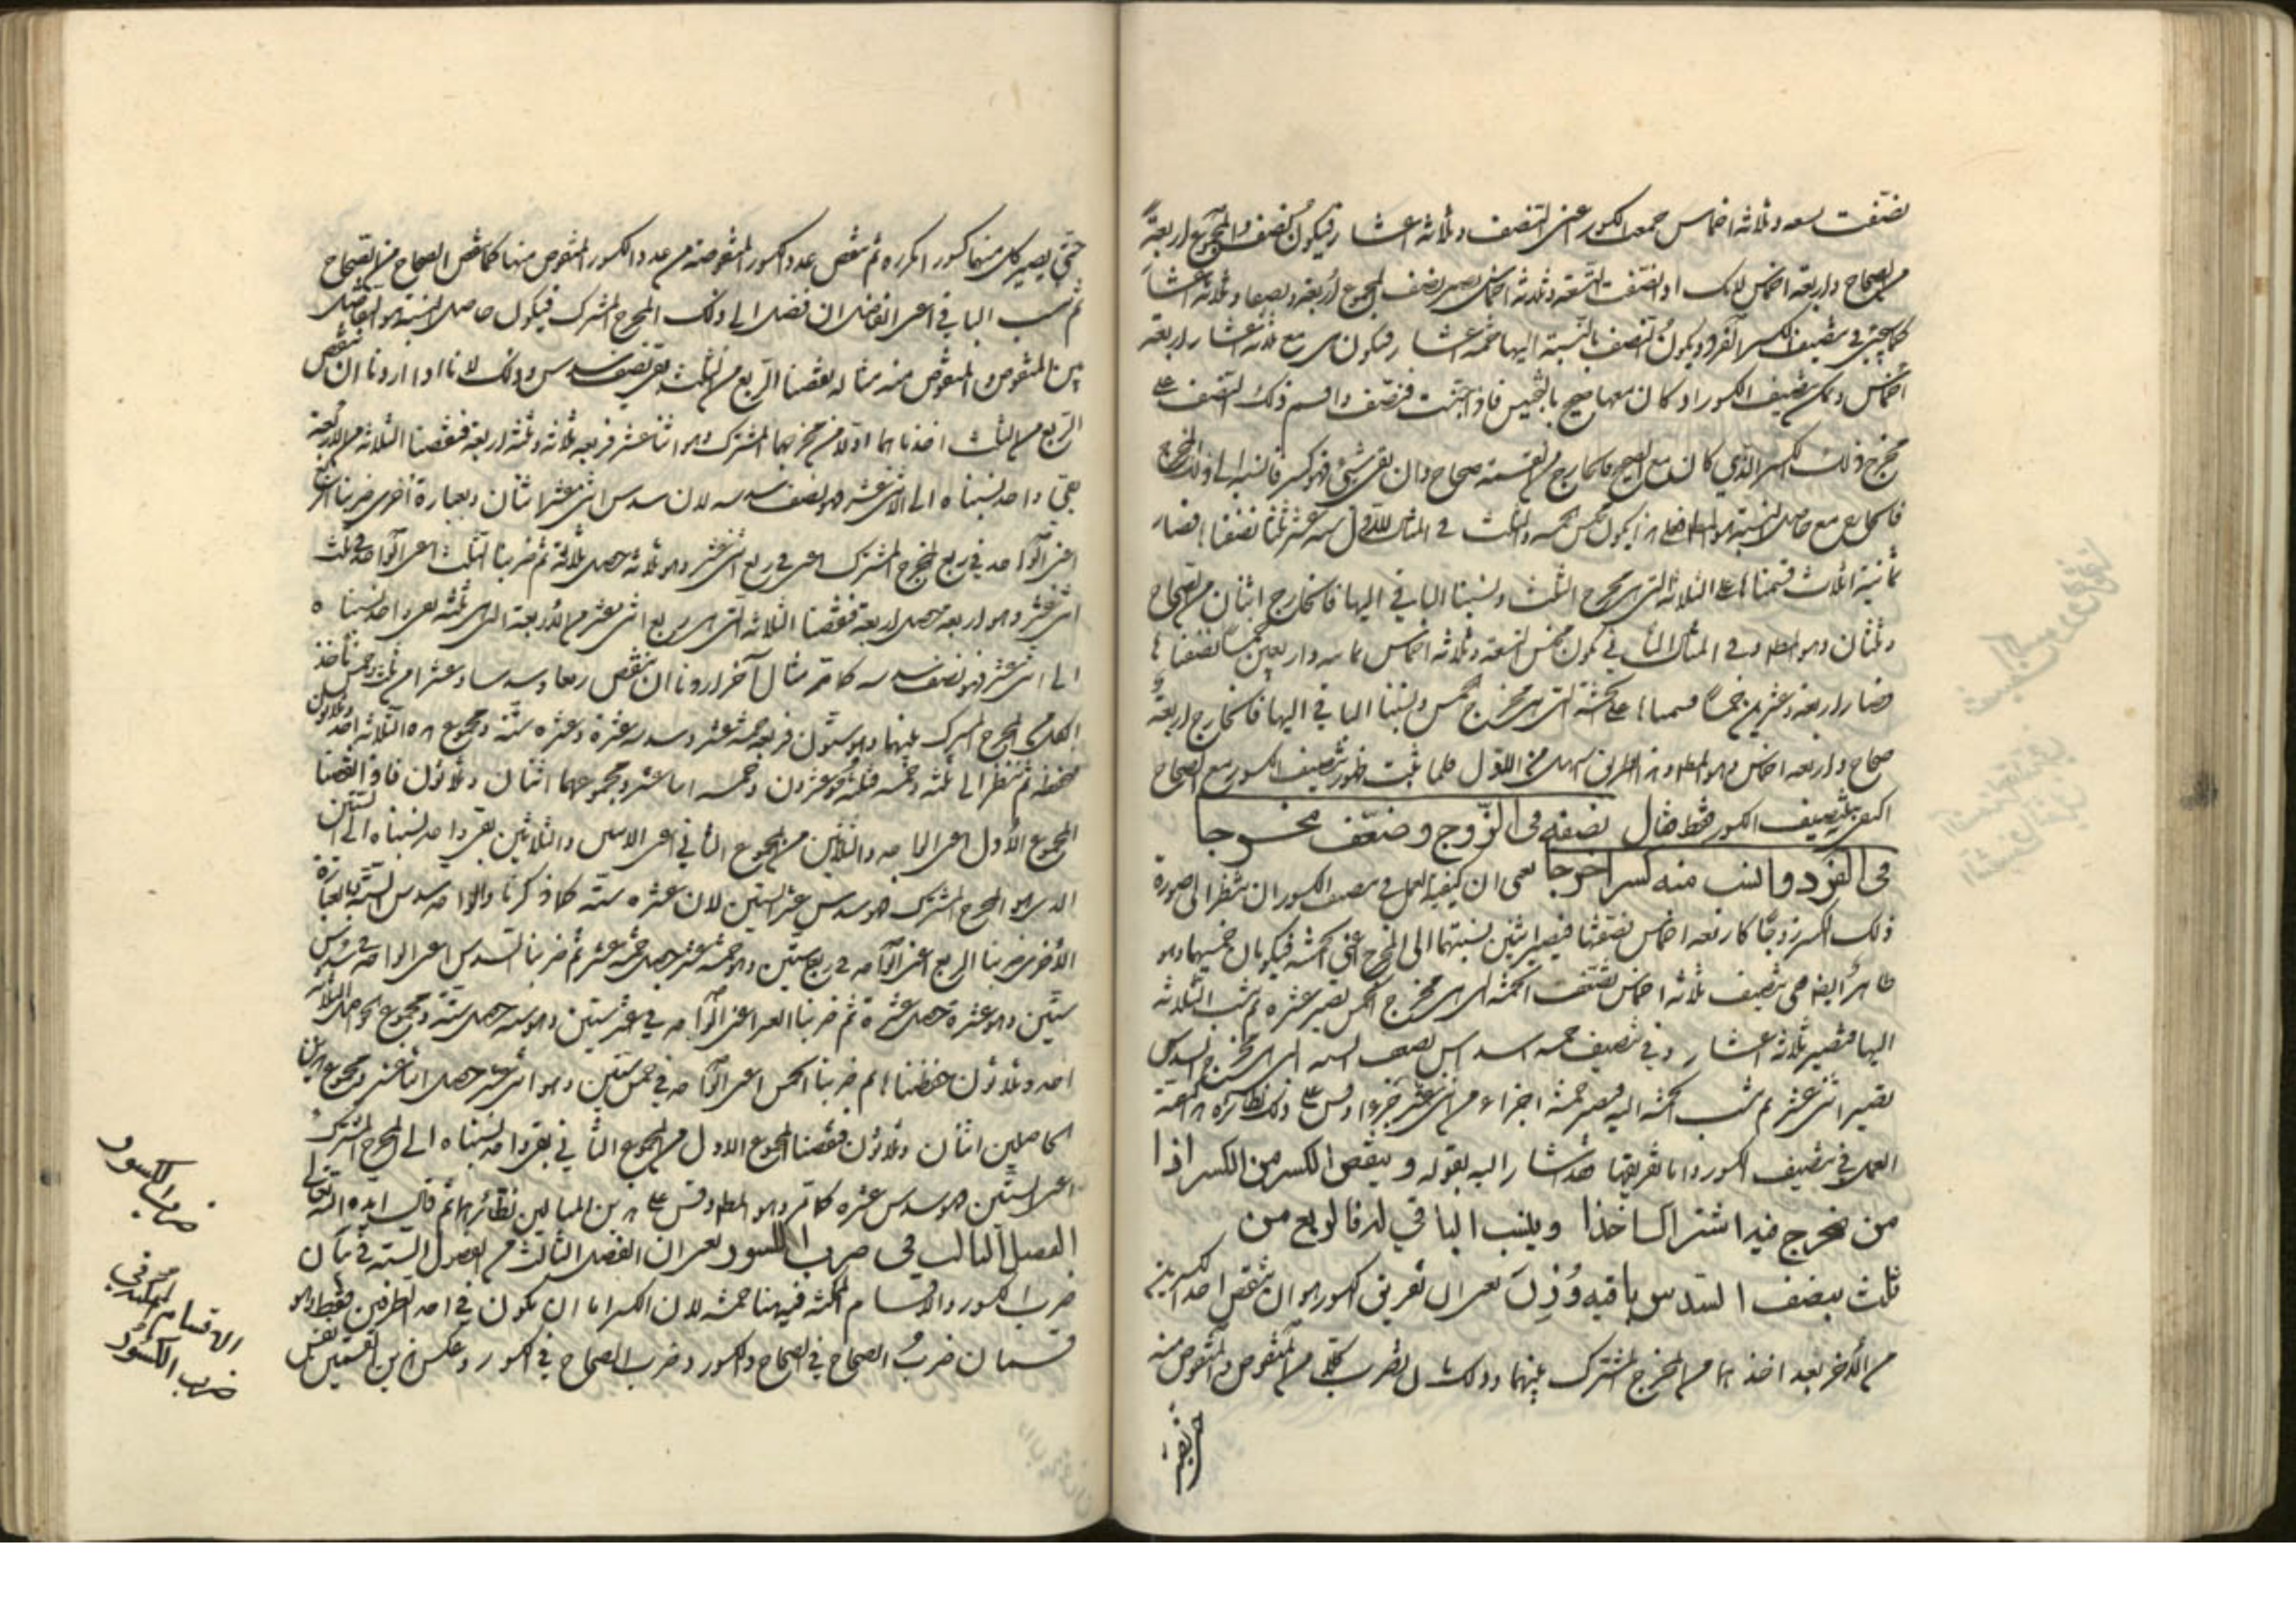 نصّفت تسعة وثلاثة اخماس جمعت الكسور اعنى النصف وثلاثة اعشار فيكون نصف المجموع اربعة
من الصحاح واربعة اخماس لانك اذا نصّفت التسعة وثلاثة اخماس يصير نصف المجموع اربعة ونصفا وثلاثة اعشار
كما يجئ فى تنصيف الكسر المفرد ويكون النصف بالنسبة اليها خمسة اعشار فيكون مع ثلاثة اعشار اربعة
اخماس ويمكن تنصيف الكسور اذا كان معها صحيح بالتجنيس فاذا جنّست فنصّف واقسم ذلك النصف على
مخرج ذلك الكسر الذى كان مع الصحيح فالخارج من القسمة صحاح وان بقى شئ فهو كسر فانسبه الى ذلك المخرج
فالخارج مع حاصل النسبة هو المطلوب فعلى هذا يكون مجنس خمسة والثلث فى المثال الاول ستة عشر ثلثا نصّفناها فصار
ثمانية اثلاث قسمناها على الثلاثة التى هى مخرج الثلث ونسبنا الباقى اليها فالخارج اثنان من الصحاح
وثلثان وهو المطلوب وفى المثال الثانى يكون مجنس التسعة وثلاثة اخماس ثمانية واربعين خمسا نصّفناها
فصار اربعة وعشرين خمسا قسمناها على الخمسة التى هى مخرج الخمس ونسبنا الباقى اليها فالخارج اربعة
صحاح واربعة اخماس وهو المطلوب وهذا الطريق اسهل من الاول فلما ثبت ظهور تنصيف الكسور مع الصحاح
اكتفى بتنصيف الكسور فقط فقال نصفه فى الزّوج وضعّف مخرجا
فى الفرد وانسب منه كسرا خرجا يعنى ان كيفية العمل فى تنصيف الكسور ان تنظر الى صورة
ذلك الكسر زوجًا كاربعة اخماس نصّفتها فيصير اثنين نسبتهما الى المخرج اعنى الخمسة فيكونان خمسيها وهو
ظاهر ايضا ففى تنصيف ثلاثة اخماس تضعّف الخمسة التى هى مخرج الخمس تصير عشرة ثم تنسب الثلاثة
اليها فتصير ثلاثة اعشار وفى تنصيف خمسة اسداس تضعف الستة التى هى مخرج السدس
تصير اثنى عشر ثم تنسب الخمسة اليه فيصير خمسة اجزاء من اثنى عشر جزءا وقس على ذلك نظائره هذا كيفية
العمل فى تنصيف الكسور واما تفريقها فقد اشار اليه بقوله وينقص الكسر من الكسر اذا
من مخرج فيه اشتراك اخذا وينسب الباقي له فالربع من
ثلث بنصف السّدس باقيه وُزِنَ يعنى ان تفريق الكسور هو ان تنقص احد الكسرين
من الآخر بعد اخذهما من المخرج المشترك بينهما وذلك بان يضرب كل من المنقوص والمنقوص منه
حتى يصير
حتى يصير كل منهما كسورا مكررة ثم تنقص عدد الكسور المنقوصة من عدد الكسور المنقوص منها كما تنقص الصحاح من الصحاح
ثم تنسب الباقى اعنى الفاضل ان فضل الى ذلك المخرج المشترك فيكون حاصل النسبة هو التفاضل
بين المنقوص والمنقوص منه مثاله نقصنا الربع من الثلث بقى نصف سدس وذلك لانا اذا اردنا ان ننقص
الربع من الثلث اخذناهما اولا من مخرجهما المشترك وهو اثنا عشر فربعه ثلاثة وثلثه اربعة فنقصنا الثلاثة من الاربعة
بقى واحد نسبناه الى الاثنى عشر فهو نصف سدسه لان سدس اثنى عشر اثنان وبعبارة اخرى ضربنا الربع
اعنى الواحد فى ربع المخرج المشترك اعنى فى ربع اثنى عشر وهو ثلاثة حصل ثلاثة ثم ضربنا الثلث اعنى الواحد فى ثلث
اثنى عشر وهو اربعة حصل اربعة فنقصنا الثلاثة التى هى ربع اثنى عشر من الاربعة التى هى ثلثه بقى واحد نسبناه
الى اثنى عشر فهو نصف سدسه كما مر مثال آخر اردنا ان ننقص ربعا وسدسا وعشرا من ثلث وخمس ناخذ
الكل من المخرج المشترك بينهما وهو ستون فربعه خمسة عشر وسدسه عشرة وعشره ستة ومجموع هذه الثلاثة احد وثلاثون
نحفظه ثم ننظر الى ثلثه وخمسه فثلثه عشرون وخمسه اثنا عشر ومجموعهما اثنان وثلاثون فاذا نقصنا
المجموع الاول اعنى الواحد والثلاثين من المجموع الثانى اعنى الاثنين والثلاثين بقى واحد نسبناه الى الستين
الذى هو المخرج المشترك فهو سدس عشر الستين لان عشره ستة كما ذكرنا والواحد سدس الستة وبالعبارة
الاخرى ضربنا الربع اعنى الواحد فى ربع ستين وهو خمسة عشر حصل خمسة عشر ثم ضربنا السدس اعنى الواحد فى سدس
ستين وهو عشرة حصل عشرة ثم ضربنا العشر اعنى الواحد فى عشر ستين وهو ستة حصل ستة ومجموع الحواصل الثلاثة
احد وثلاثون حفظناها ثم ضربنا الخمس اعنى الواحد فى خمس ستين وهو اثنى عشر حصل اثنا عشر ومجموع هذين
الحاصلين اثنان وثلاثون فنقصنا المجموع الاول من المجموع الثانى بقى واحد نسبناه الى المخرج المشترك
اعنى الستين فهو سدس عشره كما مر وهو المطلوب وقس على هذين المثالين نظائرهما ثم قال ايده الله تعالى
الفصل الثالث فى ضرب الكسور يعنى ان الفصل الثالث من الفصول الستة فى بيان
ضرب الكسور والاقسام الممكنة فيه هنا خمسة لان الكسر اما ان يكون فى احد الطرفين فقط وهو
قسمان ضرب الصحاح فى الصحاح والكسور وضرب الصحاح فى الكسور وعكس هذين القسمين
ضرب الكسور
الاقسام الممكنة فى
ضرب الكسور